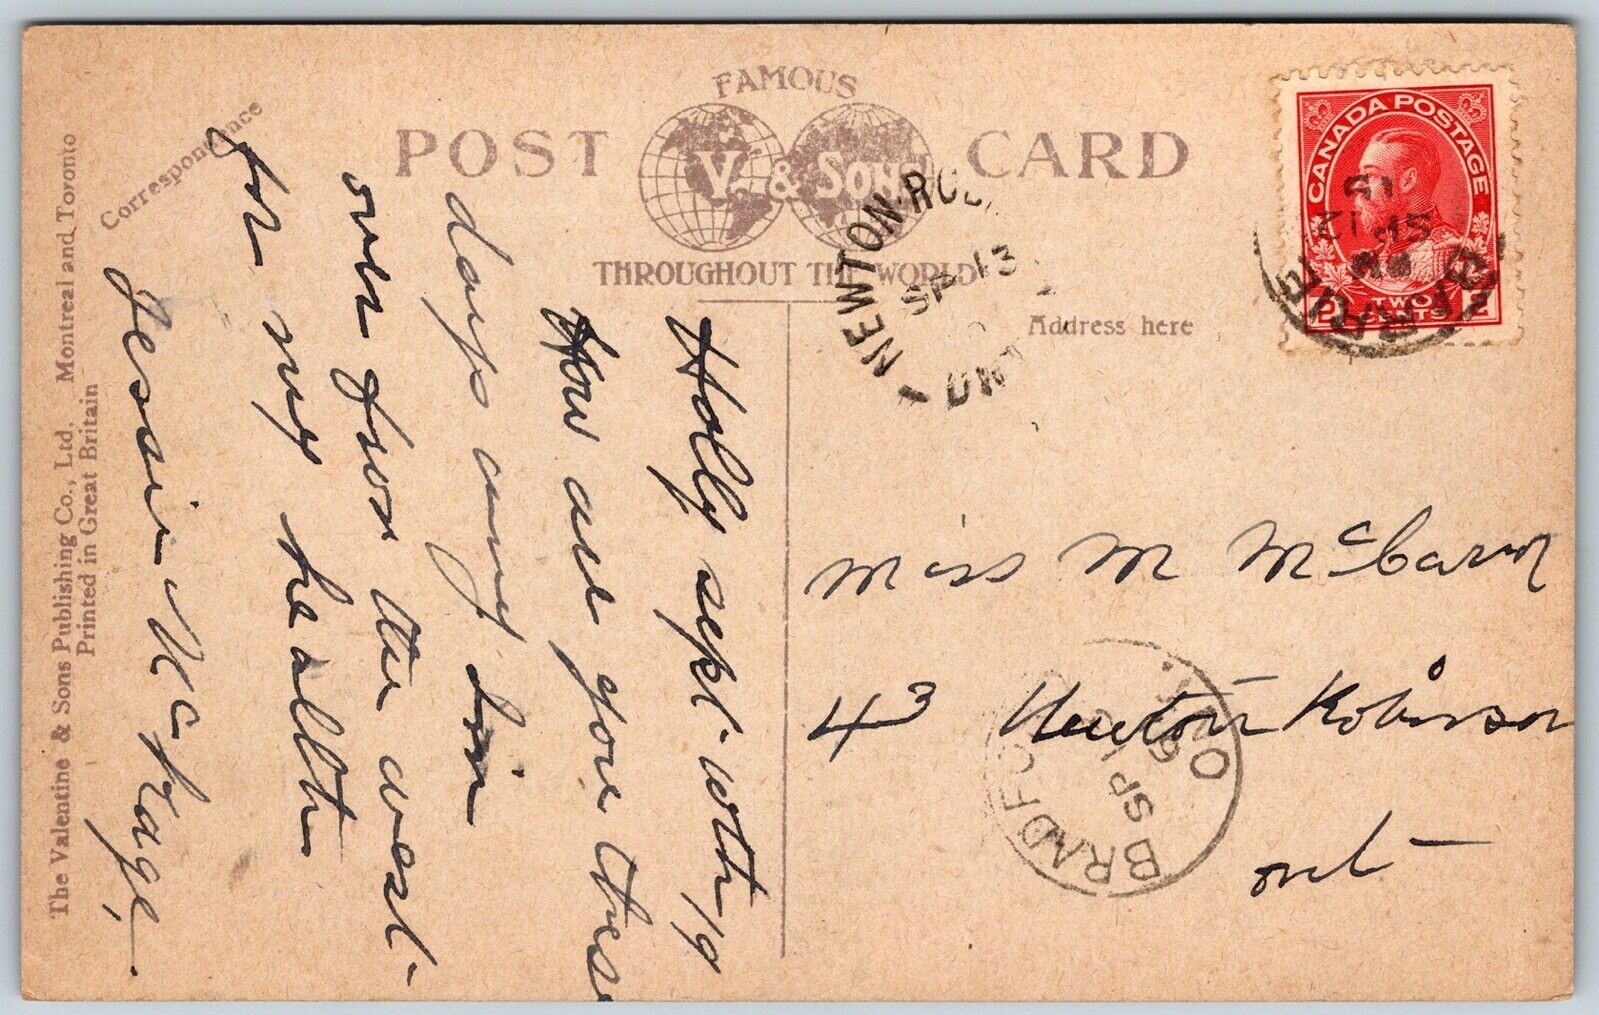 FAMOUS
POST CARD
V. & SONS
THROUGHOUT THE WORLD
Correspondence
Address here
The Valentine & Sons Publishing Co., Ltd. Montreal and Toronto
Printed in Great Britain
CANADA POSTAGE
2 TWO CENTS 2
PM
SP 12
15
NEWTON-RO
SP 13
ONT
BRADFORD
SP
ONT.
Holly sept
How are you these
days am in
over from the west
for my health
Jessie Mc
Miss M Mc
43 Newton Robinson
ont